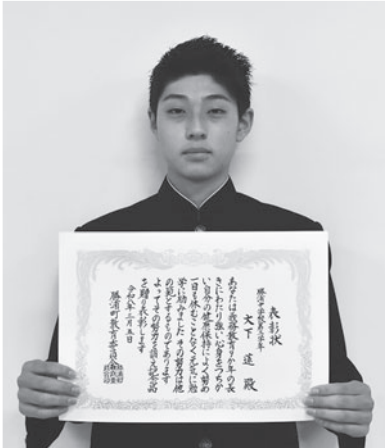 表彰状
勝浦中学校第三学年
大下 蓮 殿
あなたは義務教育9か年の長
きにわたり強い心身をつちか
い自分の健康保持によく努め
一日も休むことなく元気に勉
学に励みました その努力は他
の範とするものであります
よってその努力を讃え記念品
を贈り表彰します
令和 三月五日
勝浦町教育委員会